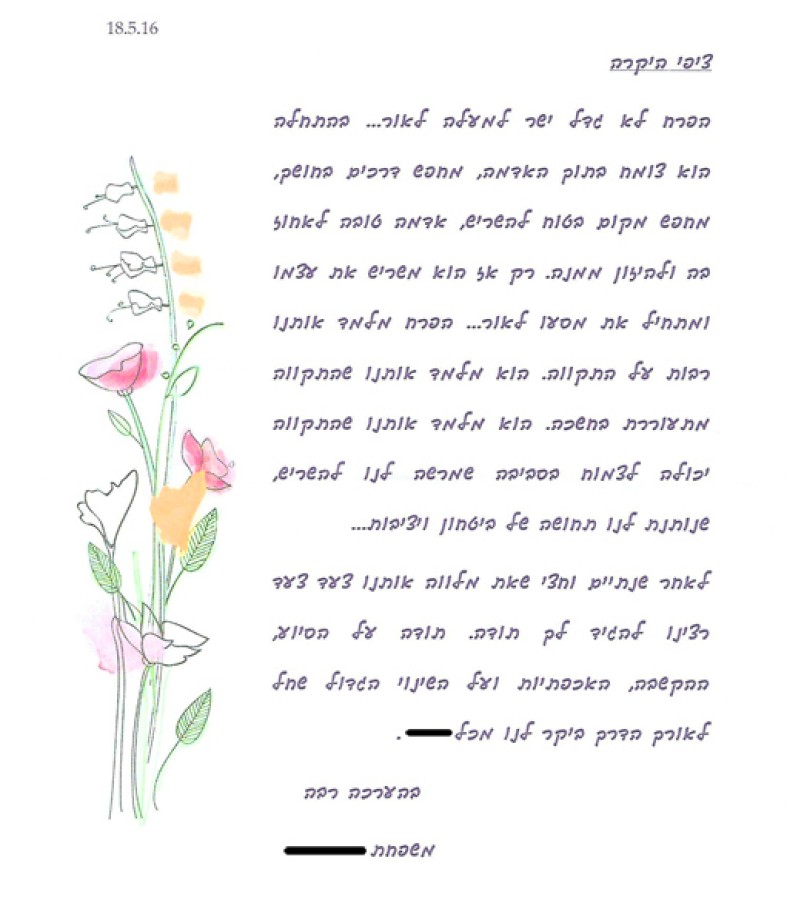 18.5.16
ציפי היקרה
הפרח לא גדל ישר למעלה לאור... בהתחלה
הוא צומח בתוך האדמה, מחפש דרכים בחושך,
מחפש מקום בטוח להשריש, אדמה טובה לאחוז
בה ולהיזון ממנה. רק אז הוא משריש את עצמו
ומתחיל את מסעו לאור... הפרח מלמד אותנו
רבות על התקווה. הוא מלמד אותנו שהתקווה
מתעוררת בחשכה. הוא מלמד אותנו שהתקווה
יכולה לצמוח בסביבה שמרשה לנו להשריש,
שנותנת לנו תחושה של ביטחון ויציבות...
לאחר שנתיים וחצי שאת מלווה אותנו צעד צעד
רצינו להגיד לך תודה. תודה על הסיוע,
ההקשבה, האכפתיות ועל השינוי הגדול שחל
לאורך הדרך ביקר לנו מכל .
בהערכה רבה
משפחת